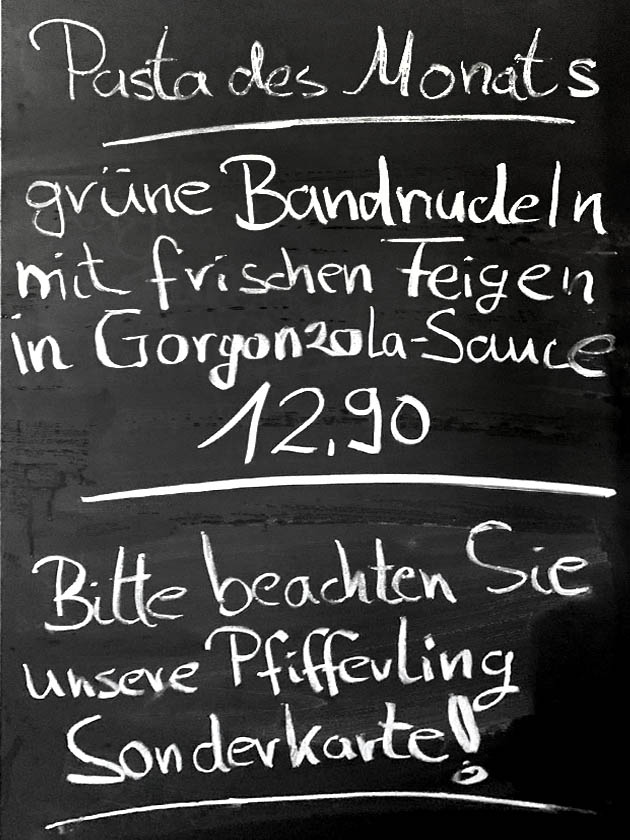 Pasta des Monats
grüne Bandnudeln
mit frischen Feigen
in Gorgonzola-Sauce
12,90
Bitte beachten Sie
unsere Pfifferling
Sonderkarte!